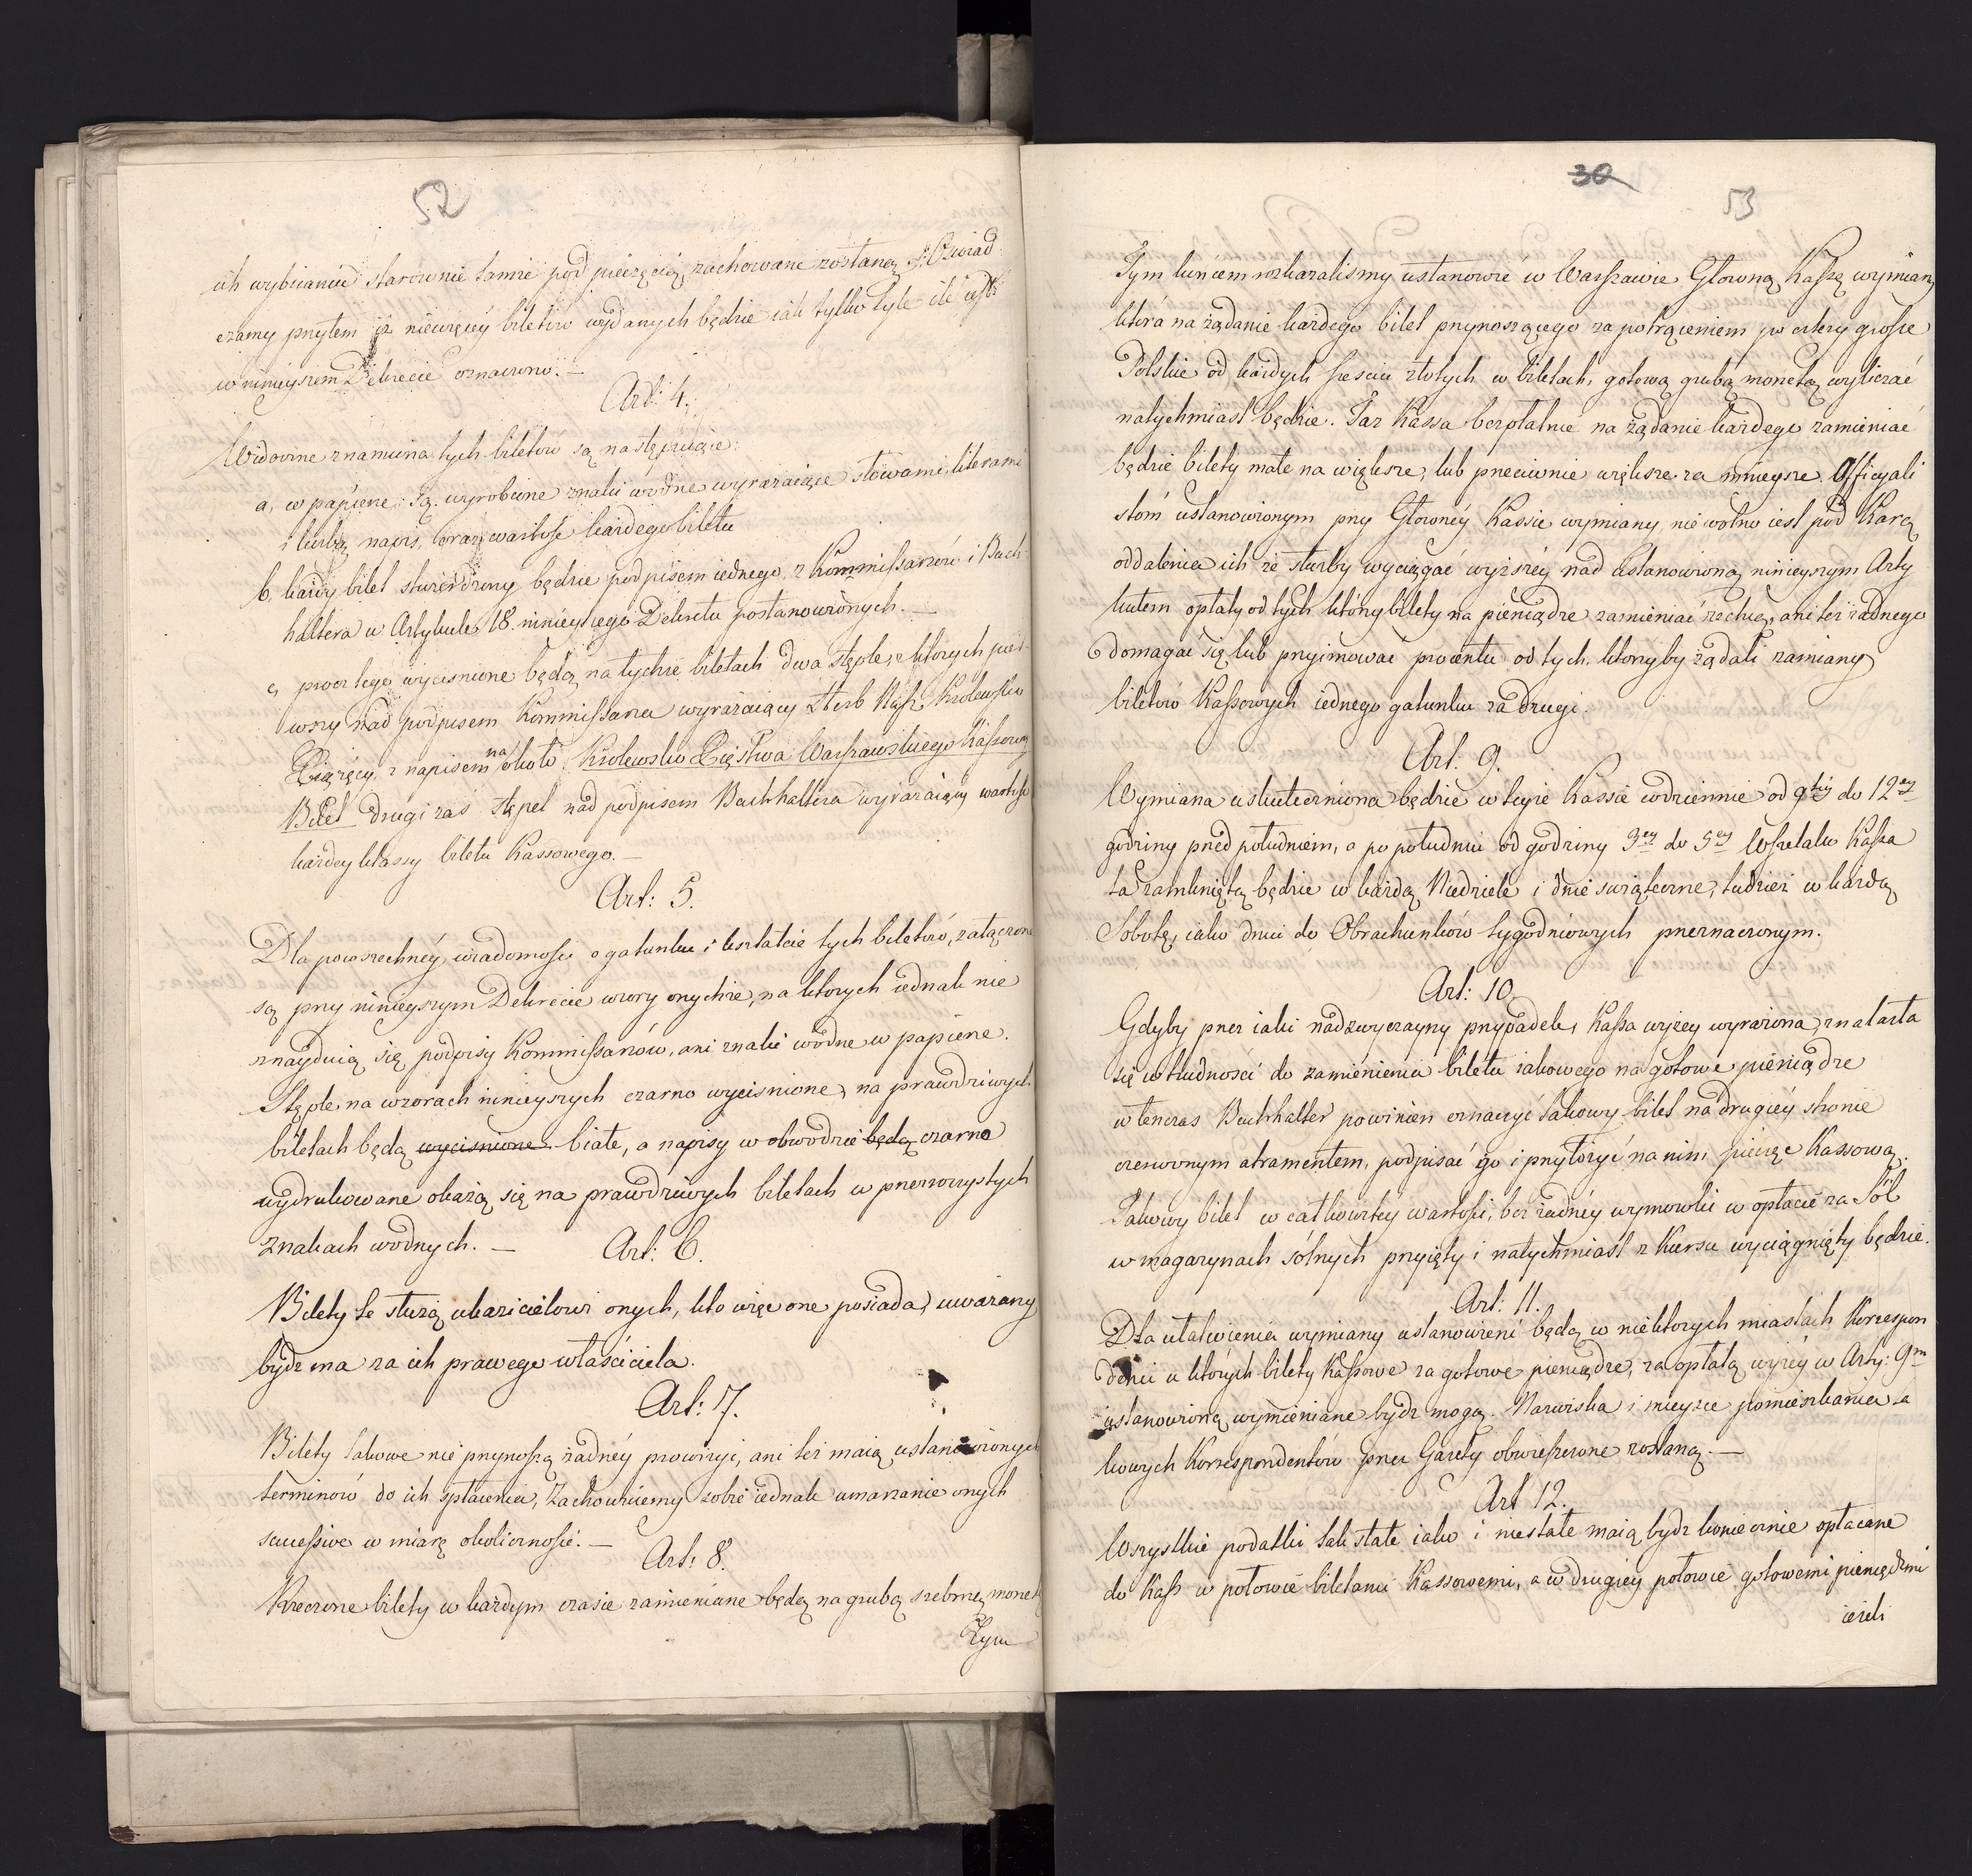 52
ich wybiianiu starownie tamże pod pieczęcią zachowane zostaną. Oświad
czamy przytem iż niewięcéy biletów wydanych będzie iak tylko tyle ile iest
w ninieyszem Dekrecie oznaczono. —
Art: 4.
Widoczne znamiona tych biletów są następuiące:
a, w papierze są wyrobione znaki wodne wyrażaiące słowami, literami
i liczbą napis, oraz wartość każdego biletu
b, każdy bilet stwierdzony będzie podpisem iednego z Kommissarzów i Buch-
haltera w Artykule 18. ninieyszego Dekretu postanowionych. —
c, procz tego wycisnione będą na tychże biletach dwa stęple, z których pier-
wszy nad podpisem Kommissarza wyrażaiący Herb Nasz Krolewsko
Xiążęcy z napisem na około Krolewsko Xięstwa Warszawskiego Kassowy
Bilet drugi zaś stępel nad podpisem Buchhaltera wyrażaiący wartość
każdey klassy biletu Kassowego. —
Art: 5.
Dla powszechnéy wiadomości o gatunku i kształcie tych biletów, załączone
są przy ninieyszym Dekrecie wzory onychże, na których iednak nie
znayduią się podpisy Kommissarzów, ani znaki wodne w papierze.
Stęple na wzorach ninieyszych czarno wycisnione, na prawdziwych
biletach będą wycisnione białe, a napisy w obwodzie będą czarno
wydrukowane okażą się na prawdziwych biletach w przezroczystych
znakach wodnych. —
Art: 6.
Bilety te służą okazicielowi onych, kto więc one posiada, uważany
bydz ma za ich prawego właściciela.
Art: 7.
Bilety takowe nie przynoszą żadnéy prowizyi, ani też maią ustanowionych
terminów do ich spłacenia, Zachowuiemy sobie iednak umarzanie onych
successive w miarę okoliczności. —
Art: 8.
Rzeczone bilety w każdym czasie zamieniane będą na grubą srebrną monetę
Tym
30
53
Tym końcem rozkazaliśmy ustanowić w Warszawie Głowną Kassę wymiany
która na żądanie każdego bilet przynoszącego za potrąceniem po cztery grosze
Polskie od każdych sześciu złotych w biletach, gotową grubą monetą wyliczać
natychmiast będzie. Taż Kassa bezpłatnie na żądanie każdego zamieniać
będzie bilety małe na większe, lub przeciwnie większe za mnieysze. Officyali
stóm ustanowionym przy Głownéy Kassie wymiany, nie wolno iest pod Karą
oddalenia ich ze służby wyciągać wyższéy nad ustanowioną ninieyszym Arty
kułem opłaty od tych którzy bilety na pieniądze zamieniać zechcą, ani też żadnego
domagać się lub przyimować procentu od tych, którzyby żądali zamiany
biletów Kassowych iednego gatunku za drugi.
Art: 9.
Wymiana uskuteczniona będzie w teyże Kassie codziennie od 9téy do 12ey
godziny przed południem, a po południu od godziny 3ey do 5ey Wszelako Kassa
ta zamkniętą będzie w każdą Niedzielę i dnie świąteczne, tudzież w każdą
Sobotę, iako dniu do Obrachunków tygodniowych przeznaczonym.
Art: 10
Gdyby przez iaki nadzwyczayny przypadek, Kassa wyżey wyrażona, znalazła
się w trudności do zamienienia biletu iakowego na gotowe pieniądze
w tenczas Buchhalter powinien oznaczyć takowy bilet na drugiey stronie
czerwonym atramentem, podpisać go i przyłożyć na nim pieczęć Kassową.
Takowy bilet w całkowitey wartości, bez żadnéy wymowki w opłacie za Sól
w magazynach sólnych przyięty i natychmiast z Kursu wyciągnięty będzie.
Art: 11.
Dla ułatwienia wymiany ustanowieni będą w niektorych miastach Korrespon
denci u których bilety Kassowe za gotowe pieniądze, za opłatą wyżéy w Arty: 9m
ustanowioną wymieniane bydz mogą. Nazwiska i mieysce pomieszkania ta
kowych Korrespondentów przez Gazety obwieszczone zostaną. —
Art 12.
Wszystkie podatki tak stałe iako i niestałe maią bydz koniecznie opłacane
do Kass w połowie biletami Kassowemi, a w drugiey połowie gotowemi pieniędzmi
ieżeli